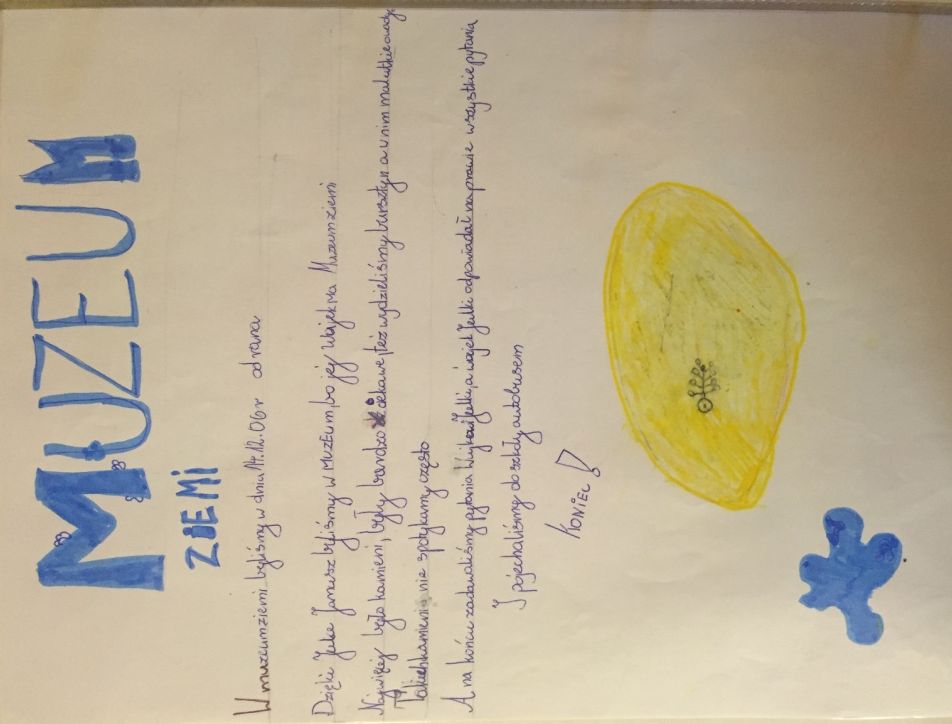 MUZEUM
ZIEMI
W muzeumziemi byliśmy w dniu 14.12.06r od rana
Dzięki Julce Janusz byliśmy w muzEum, bo jej wujek ma Muzeum ziemi
Najwięcej było kamieni, były bardzo ciekawe, też wydzieliśmy bursztyn a w nim malutkie owady.
Takich kamieni nie spotykamy często
A na końcu zadawaliśmy pytania Wujkowi Julki, a wujek Julki odpowiadał na prawie wszystkie pytania
I pojechaliśmy do szkoły autobusem
KONIEC!